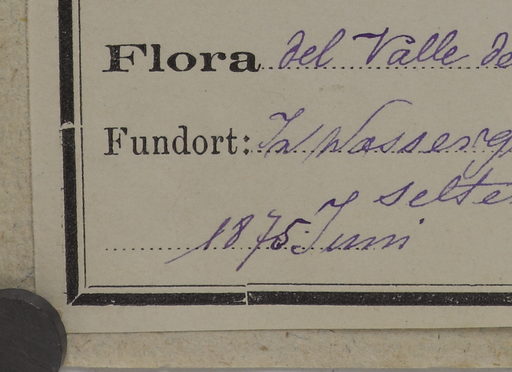 Flora del Valle de
Fundort: In Wasserg
selten
1875 Juni